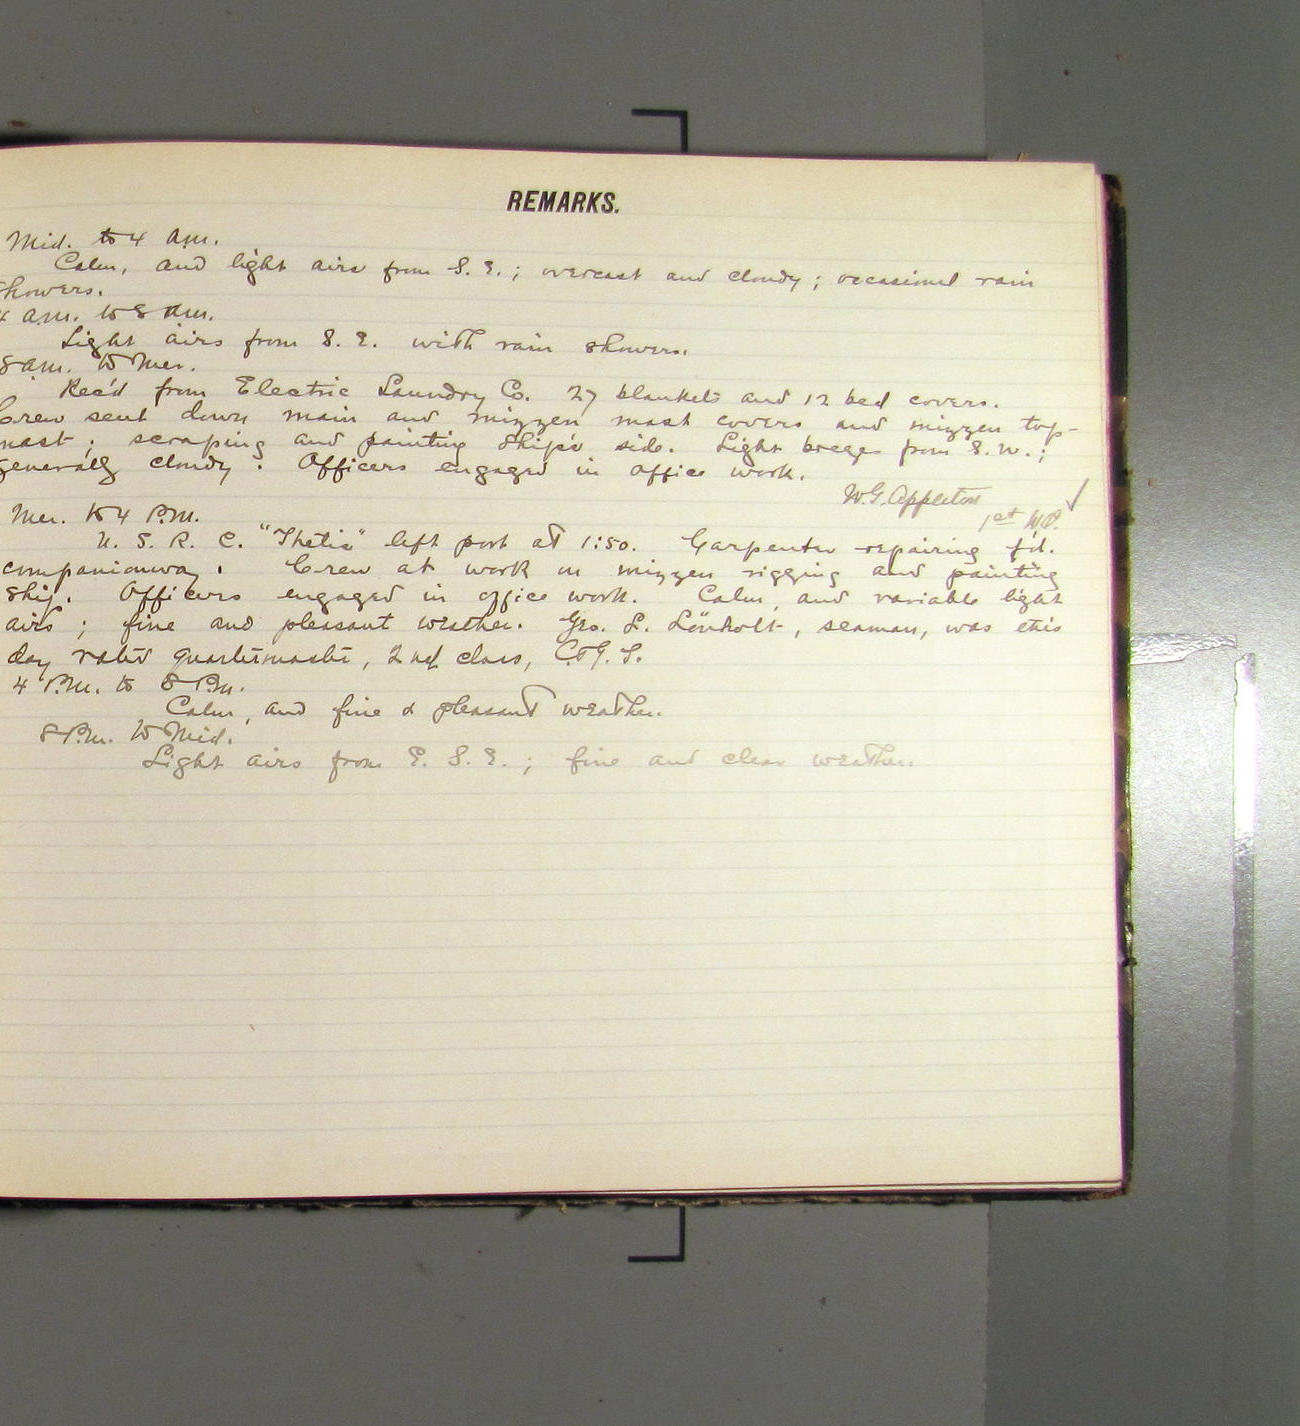 REMARKS.
Mid. to 4 a.m.
Calm, and light airs from S. E. ; overcast and cloudy ; occasional rain
showers.
4 a.m. to 8 a.m.
Light airs from S. E. with rain showers.
8 a.m. to Mer.
Rec'd from Electric Laundry Co. 27 blankets and 12 bed covers.
Crew sent down main and mizzen mast covers and mizzen top-
mast ; scraping and painting ship's side. Light breeze from S. W. ;
generally cloudy . Officers engaged in office work.
W. G. Appleton
1st W.O.
Mer. to 4 P.M.
U. S. R. C. "Thetis" left port at 1:50. Carpenter repairing f'd.
companionway . Crew at work on mizzen rigging and painting
ship. Officers engaged in office work. Calm, and variable light
airs ; fine and pleasant weather. Geo. L. , seaman, was this
day rated quartermaster, 2nd class, C.&G. S.
4 P.M. to 8 P.M.
Calm, and fine & pleasant weather.
8 P.M. to Mid.
Light airs from E. S. E. ; fine and clear weather.